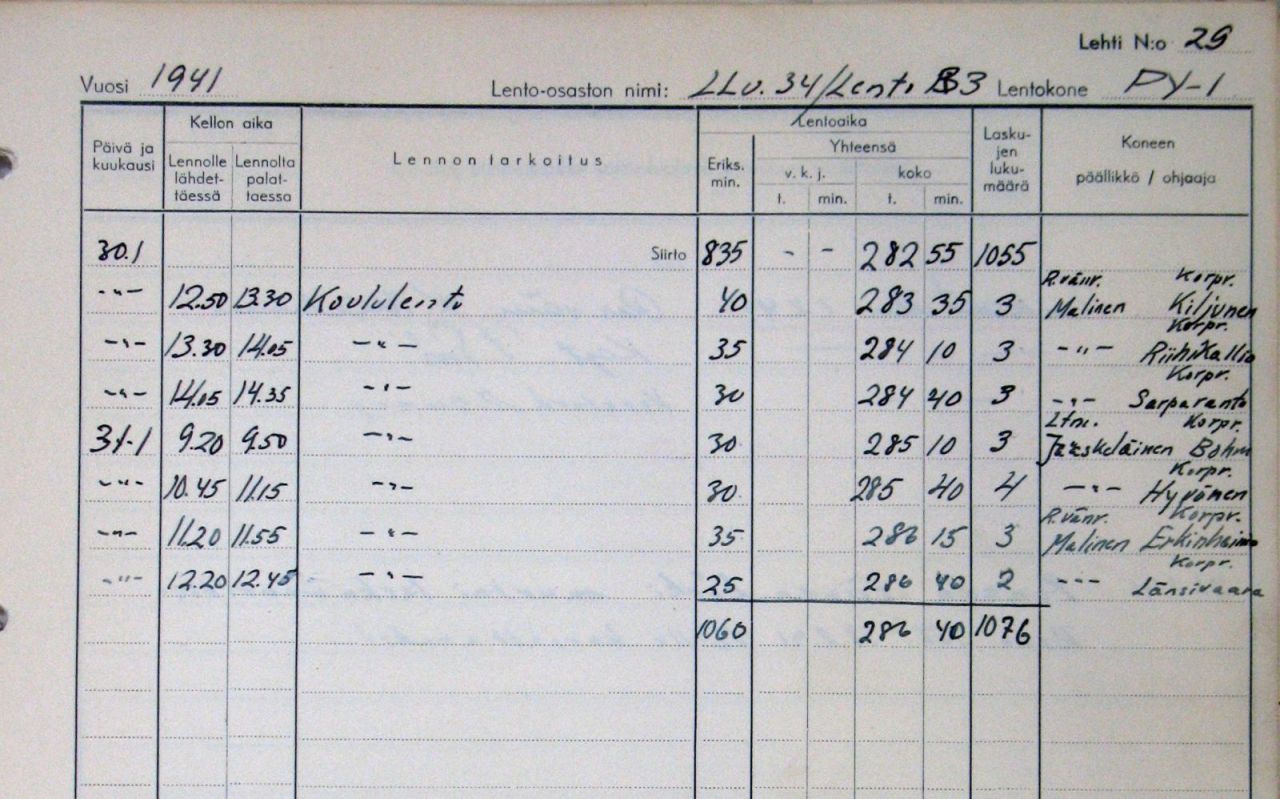 Lehti N:o 29
Vuosi 1941 Lento-osaston nimi: LLv. 34/Lento B3 Lentokone PY-1
Päivä ja kuukausi Kellon aika Lennolle lähdettäessä Lennolta palattaessa Lennon tarkoitus Lentoaika Eriks. min. Yhteensä v. k. j. t. min. koko t. min. Laskujen lukumäärä Koneen päällikkö / ohjaaja
30.1 Siirto 835 - - 282 55 1055
R.vänr. Korpr.
-"- 12.50 13.30 Koululento 40 283 35 3 Malinen Kiljunen
Korpr.
-"- 13.30 14.05 -"- 35 284 10 3 -"- Riihikallio
Korpr.
-"- 14.05 14.35 -"- 30 284 40 3 -"- Sarparanta
Ltn. Korpr.
31-1 9.20 9.50 -"- 30 285 10 3 Jääskeläinen Bohm
Korpr.
-"- 10.45 11.15 -"- 30 285 40 4 -"- Hyvönen
R.vänr. Korpr.
-"- 11.20 11.55 -"- 35 286 15 3 Malinen Erkinheimo
Korpr.
-"- 12.20 12.45 -"- 25 286 40 2 -"- Länsivaara
1060 286 40 1076